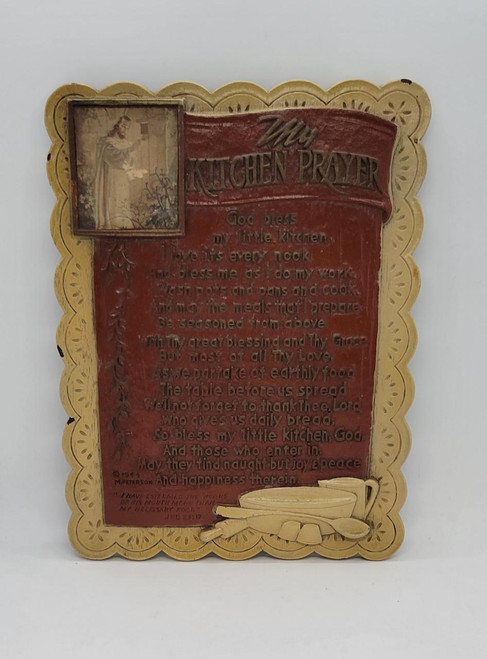 My
KITCHEN PRAYER
God bless
my little kitchen
I love its every nook
And bless me as I do my work
Wash pots and pans and cook
And may the meals that I prepare
Be seasoned from above
With Thy great blessing and Thy Grace
But most of all Thy Love.
As we partake of earthly food
The table before us spread
We'll not forget to thank Thee, Lord
who gives us daily bread.
So bless my little kitchen, God
And those who enter in
May they find naught but Joy & peace
And happiness therein